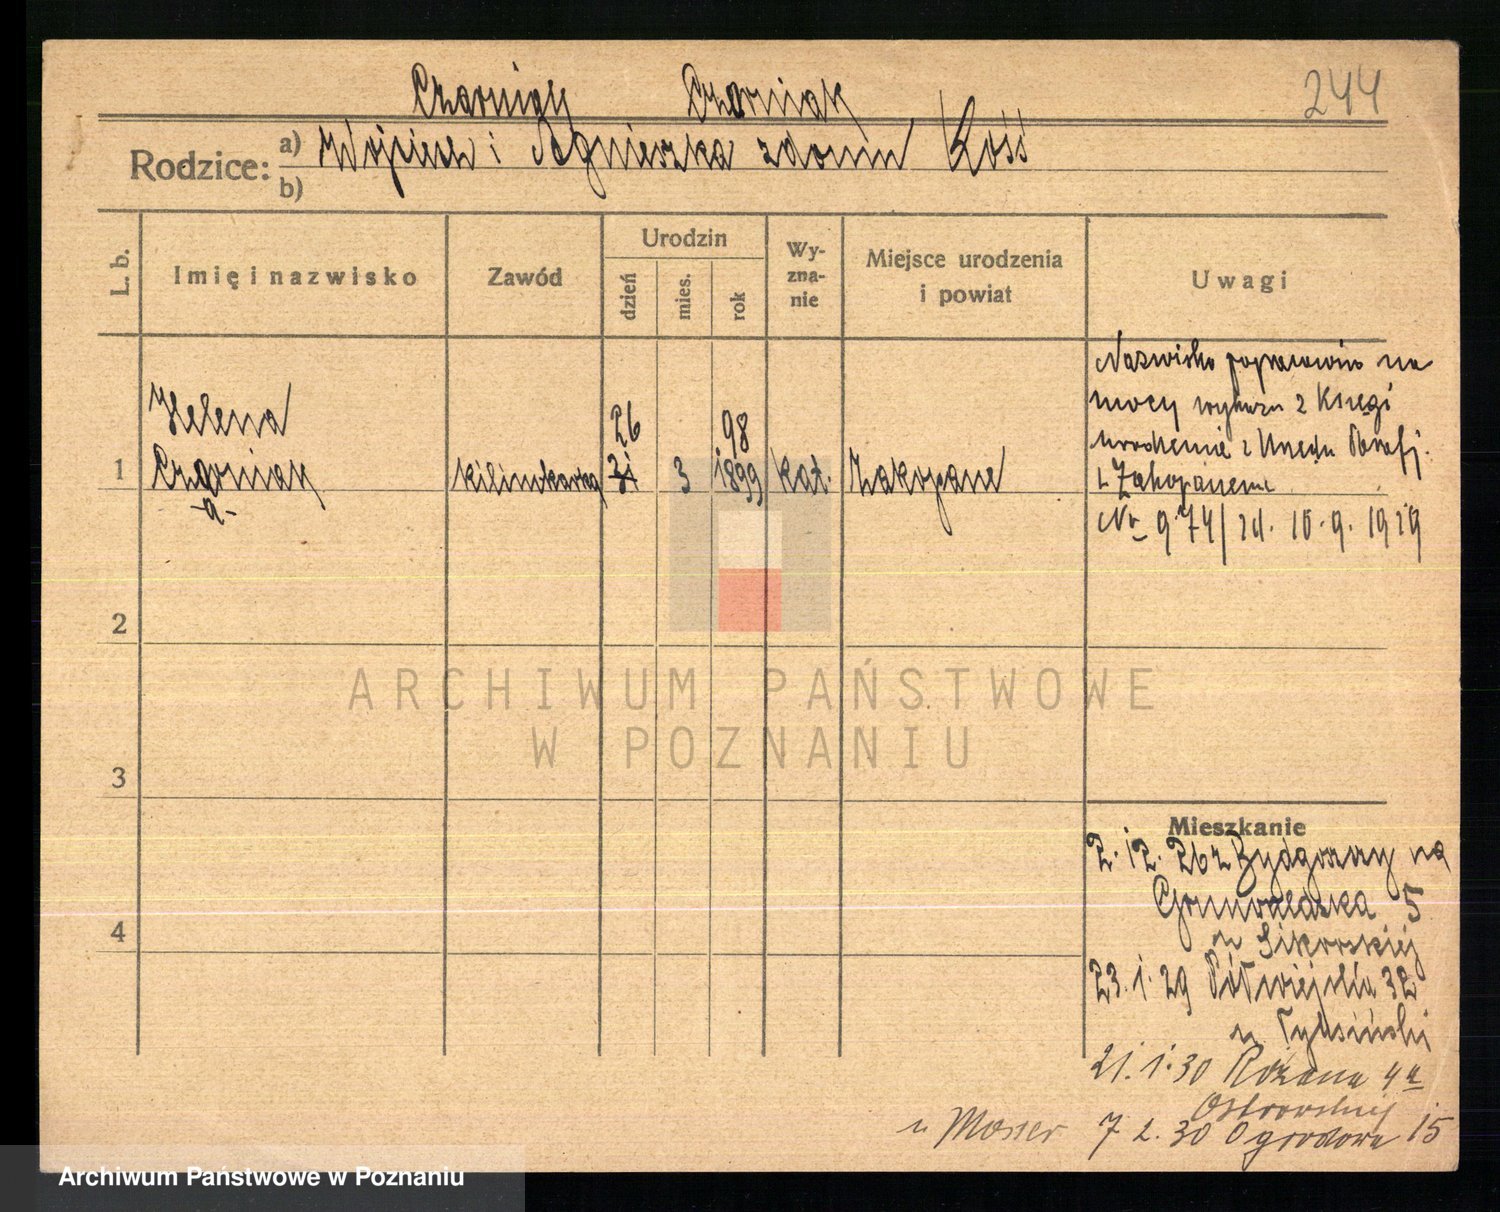 Czarniak Czarniak 244
Rodzice: a) Wojciech i Agnieszka z domu Kośś
b)
L. b. Imię i nazwisko Zawód Urodzin dzień mies. rok Wy-zna-nie Miejsce urodzenia i powiat Uwagi
Nazwisko poprawiono na
mocy wykazu z Księgi
urodzenia z Urzędu Parafj.
z Zakopanem
Nr 974/zd. 10.9.1929
Helena 26 98
1 Czarniak kilimkarka 31 3 1899 kat. Zakopane
-a-
2
ARCHIWUM PAŃSTWOWE
W POZNANIU
3
4
Mieszkanie
2.12.26 z Bydgoszczy na
Grunwaldzka 5
u Sikorskiej
23.1.29 Półwiejska 32
u
21.1.30 Różana 4a
Ostrowskiej
u Mosser 7 2.30 Ogrodowa 15
Archiwum Państwowe w Poznaniu